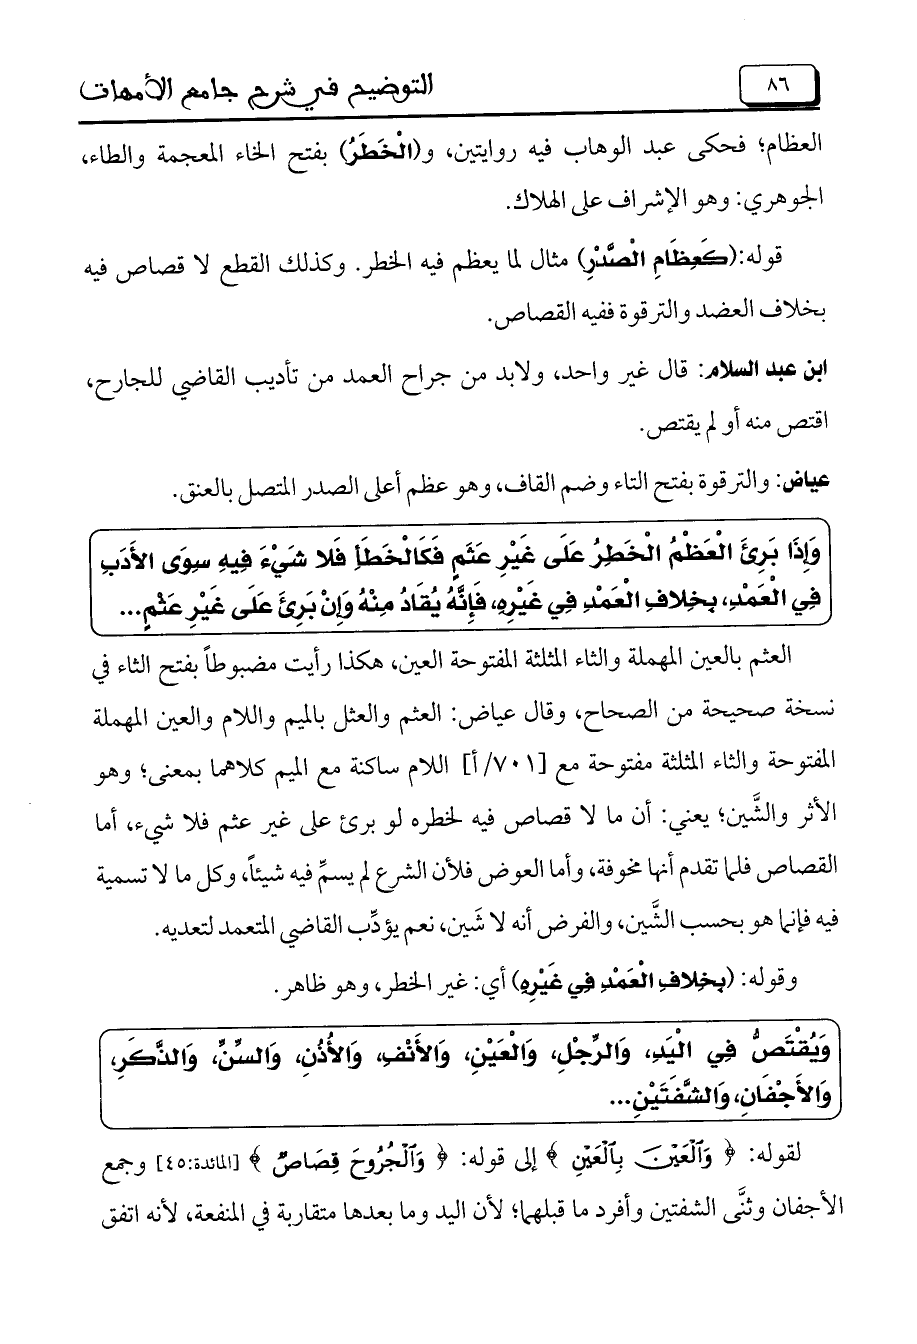 ٨٦
التوضيح في شرح جامع الأمهات
العظام؛ فحكى عبد الوهاب فيه روايتين، و(الْخَطَرُ) بفتح الخاء المعجمة والطاء،
الجوهري: وهو الإشراف على الهلاك.
قوله:(كَعِظَامِ الصَّدْرِ) مثال لما يعظم فيه الخطر. وكذلك القطع لا قصاص فيه
بخلاف العضد والترقوة ففيه القصاص.
ابن عبد السلام: قال غير واحد، ولابد من جراح العمد من تأديب القاضي للجارح،
اقتص منه أو لم يقتص.
عياض: والترقوة بفتح التاء وضم القاف، وهو عظم أعلى الصدر المتصل بالعنق.
وَإِذَا بَرِئَ الْعَظْمُ الْخَطِرُ عَلَى غَيْرِ عَثَمٍ فَكَالْخَطَأِ فَلا شَيْءَ فِيهِ سِوَى الأَدَبِ
فِي الْعَمْدِ، بِخِلافِ الْعَمْدِ فِي غَيْرِهِ، فَإِنَّهُ يُقَادُ مِنْهُ وَإِنْ بَرِئَ عَلَى غَيْرِ عَثْمٍ...
العثم بالعين المهملة والثاء المثلثة المفتوحة العين، هكذا رأيت مضبوطاً بفتح الثاء في
نسخة صحيحة من الصحاح، وقال عياض: العثم والعثل بالميم واللام والعين المهملة
المفتوحة والثاء المثلثة مفتوحة مع [٧٠١/أ] اللام ساكنة مع الميم كلاهما بمعنى؛ وهو
الأثر والشَّين؛ يعني: أن ما لا قصاص فيه لخطره لو برئ على غير عثم فلا شيء، أما
القصاص فلما تقدم أنها مخوفة، وأما العوض فلأن الشرع لم يسمِّ فيه شيئاً، وكل ما لا تسمية
فيه فإنما هو بحسب الشَّين، والفرض أنه لا شَين، نعم يؤدِّب القاضي المتعمد لتعديه.
وقوله: (بِخِلافِ الْعَمْدِ فِي غَيْرِهِ) أي: غير الخطر، وهو ظاهر.
وَيُقْتَصُّ فِي الْيَدِ، وَالرِّجْلِ، وَالْعَيْنِ، وَالأَنْفِ، وَالأُذُنِ، وَالسِّنِّ، وَالذَّكَرِ،
وَالأَجْفَانِ، وَالشَّفَتَيْنِ...
لقوله: ﴿ وَٱلْعَيْنَ بِٱلْعَيْنِ ﴾ إلى قوله: ﴿ وَٱلْجُرُوحَ قِصَاصٌ ﴾ [المائدة:٤٥] وجمع
الأجفان وثنَّى الشفتين وأفرد ما قبلهما؛ لأن اليد وما بعدها متقاربة في المنفعة، لأنه اتفق